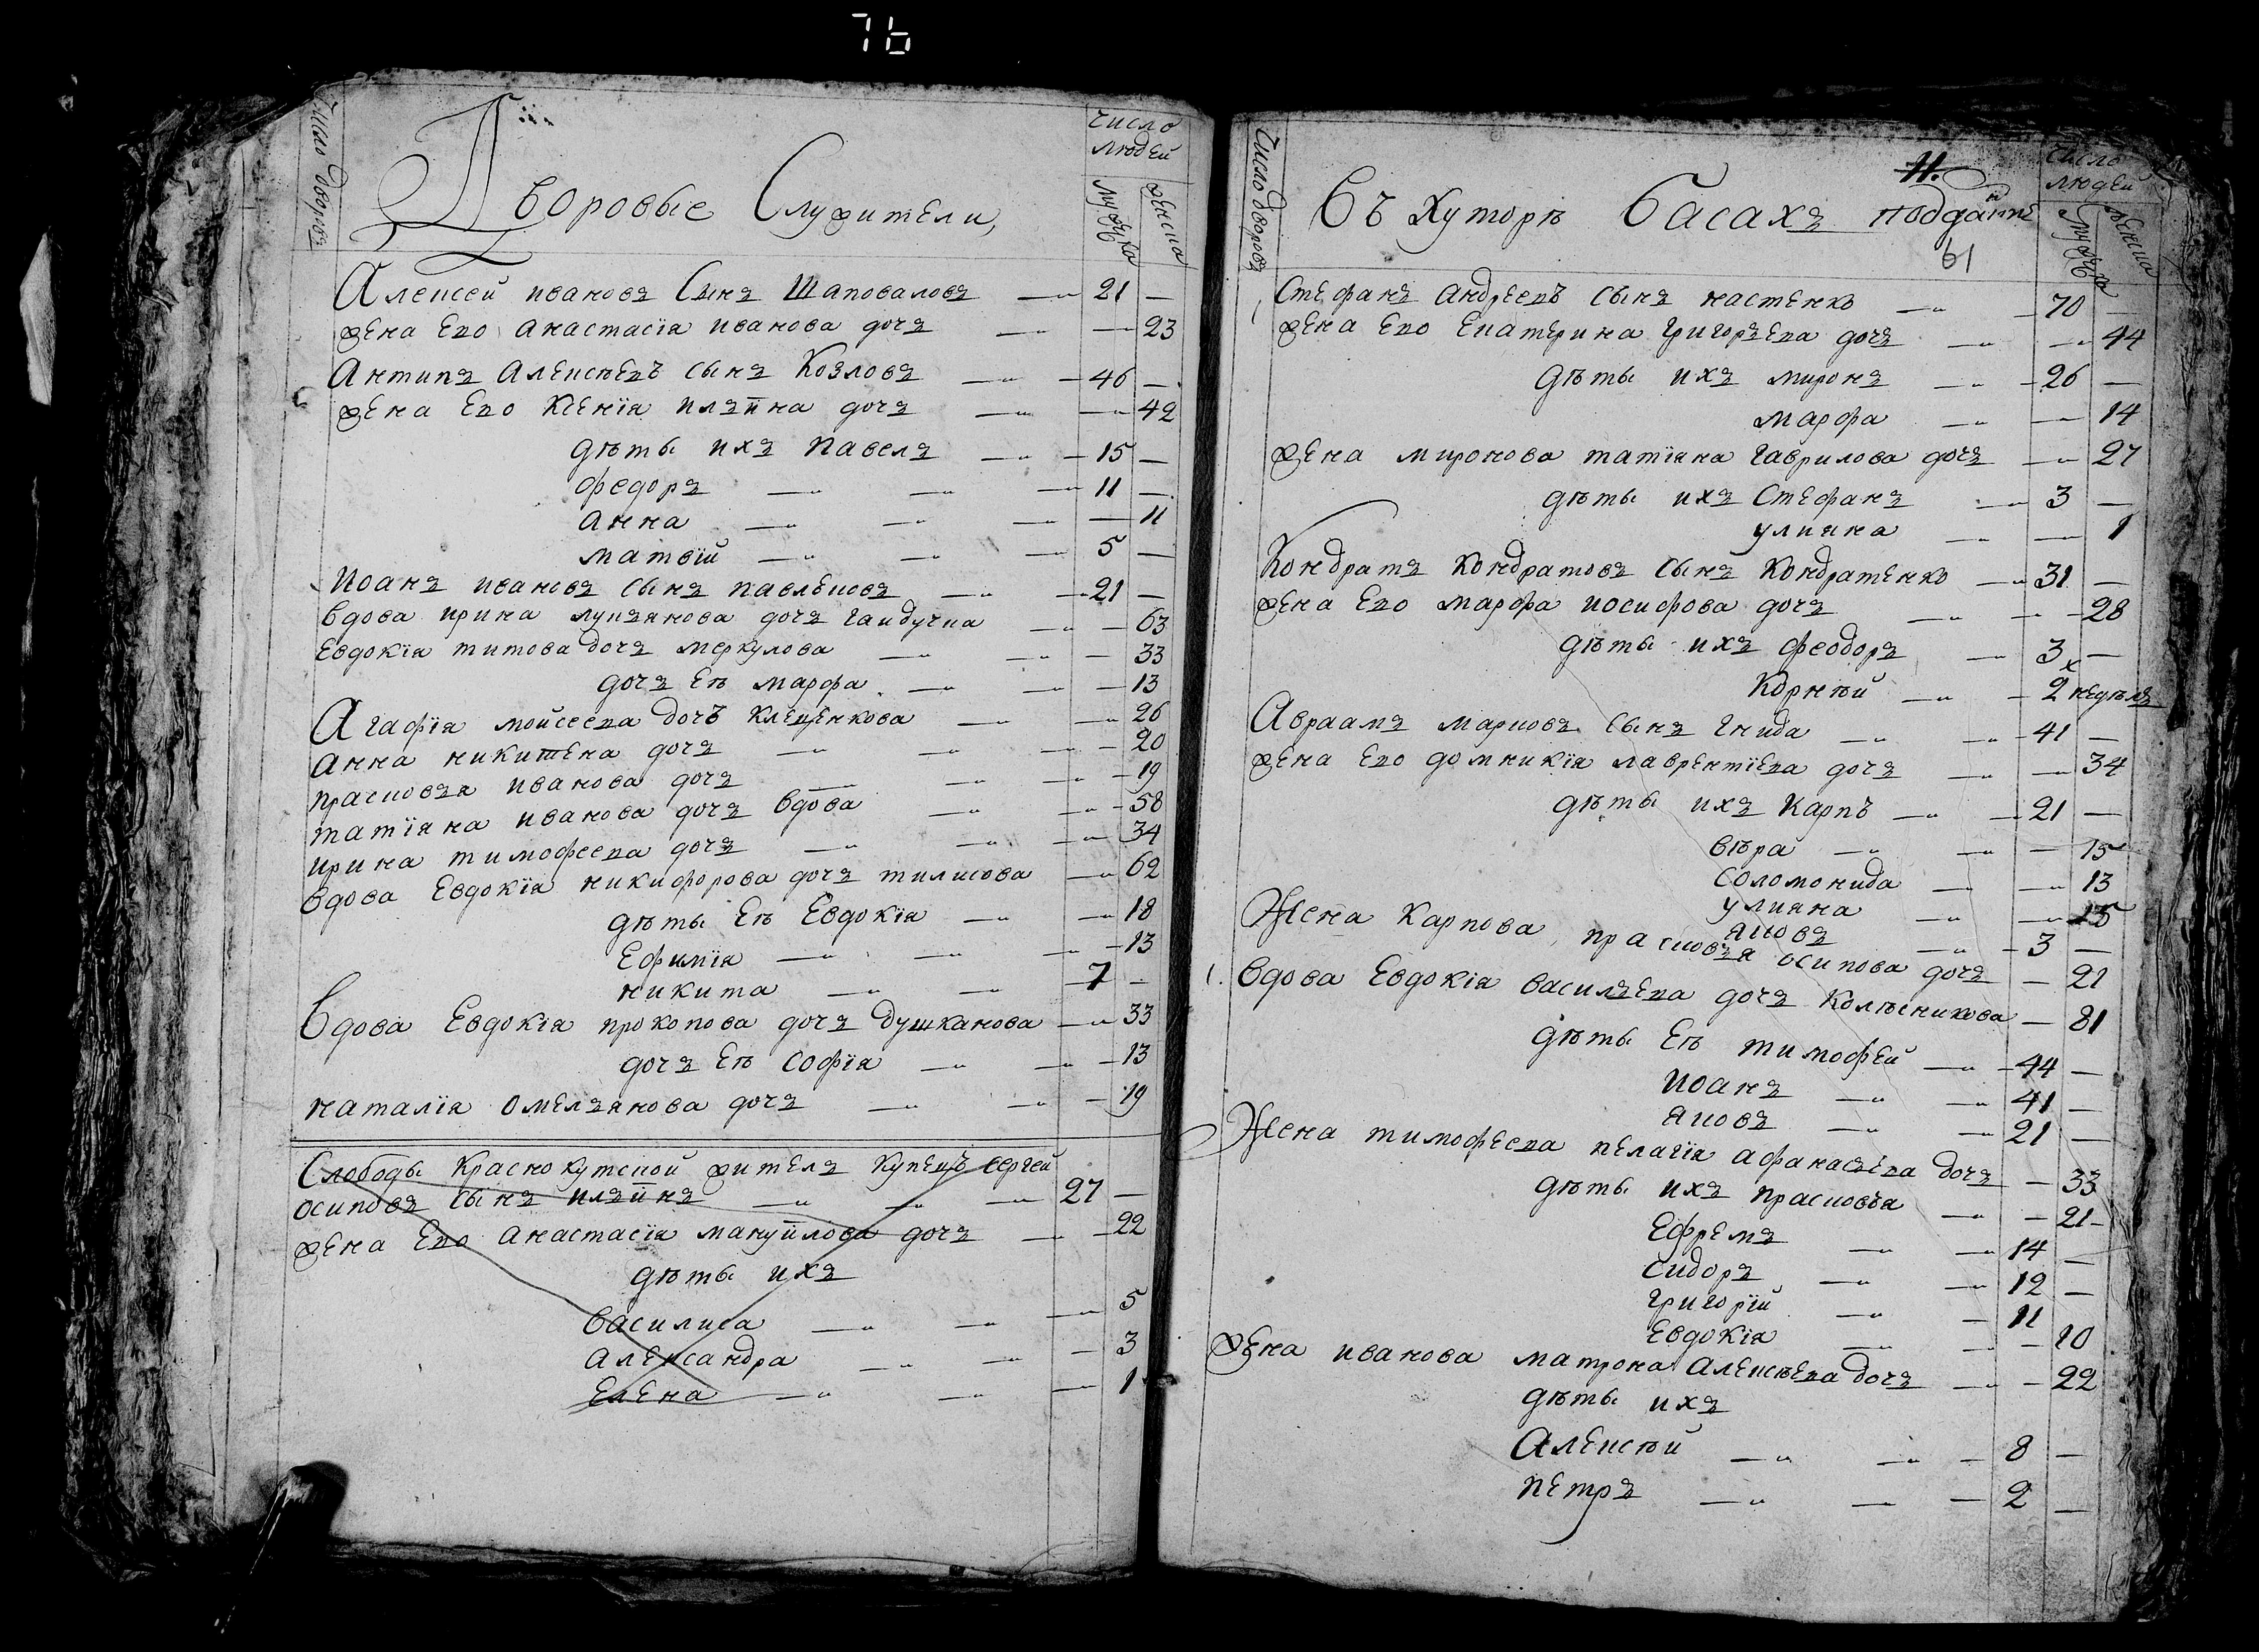 76
Число дворовъ
Дворовые Служители,
число людей
Мужеска
женска
Алексей ивановъ Сынъ Шаповаловъ 21 —
жена Его анастасїя иванова дочъ — 23
Антипъ Алексѣевъ сынъ Козловъ — 46 —
жена Его Ксенїя илъина дочъ — 42
дѣты ихъ павелъ — 15 —
федоръ — 11 —
анна — 11
матвїй — 5 —
Иоанъ ивановъ сынъ павленовъ — 21 —
вдова ирина лукъянова дочъ гайдучка — 63
Евдокїя титова дочъ меркулова — 33
дочъ Еѣ марфа — 13
Агафїя мойсеева дочъ клещенкова — 26
анна никитена дочъ — 20
прасковъя иванова дочъ — 19
татїяна иванова дочъ вдова — 58
ирина тимофеева дочъ — 34
вдова Евдокїя никифорова дочъ тилисова — 62
дѣты Еѣ Евдокїя — 18
Ефимїя — 13
никита — 7 —
Вдова Евдокїя прокопова дочъ душканова — 33
дочъ Еѣ софїя — 13
наталїя омелъянова дочъ — 19
Слободы Краснокутской жителъ купецъ сергей
осиповъ сынъ илъинъ — 27 —
жена Его анастасїя мануйлова дочъ — 22
дѣты ихъ
василиса — 5
александра — 3
Елена — 1
Число дворовъ
11.
Въ хуторѣ Басахъ подданны
61
число людей
Мужеска
женска
Стефанъ андреевъ сынъ настенко — 70 —
жена Его Екатерина григоръева дочъ — 44
дѣты ихъ миронъ — 26 —
марфа — 14
жена миронова татїяна гаврилова дочъ — 27
дѣты ихъ Стефанъ — 3 —
улияна — 1
Кондратъ кондратовъ сынъ кондратенко — 31 —
жена Его марфа иосифова дочъ — 28
дѣты ихъ феодоръ — 3 —
корнѣй — 2 недѣлъ
Авраамъ марковъ сынъ гнида — 41 —
жена Его домникїя лаврентїева дочъ — 34
дѣты ихъ карпъ — 21 —
вѣра — 15
соломонида — 13
улияна — 5
яковъ — 3 —
Жена карпова прасковъя осипова дочъ — 21
1. вдова Евдокїя василъева дочъ колѣсникова — 81
дѣты Еѣ тимофей — 44 —
иоанъ — 41 —
яковъ — 21 —
Жена тимофеева пелагїя афанасъева дочъ — 33
дѣты ихъ прасковъя — 21
Ефремъ — 14 —
сидоръ — 12 —
григорїй — 11
Евдокїя — 10
жена иванова матрона алексѣева дочъ — 22
дѣты ихъ
Алексѣй — 8 —
петръ — 2 —